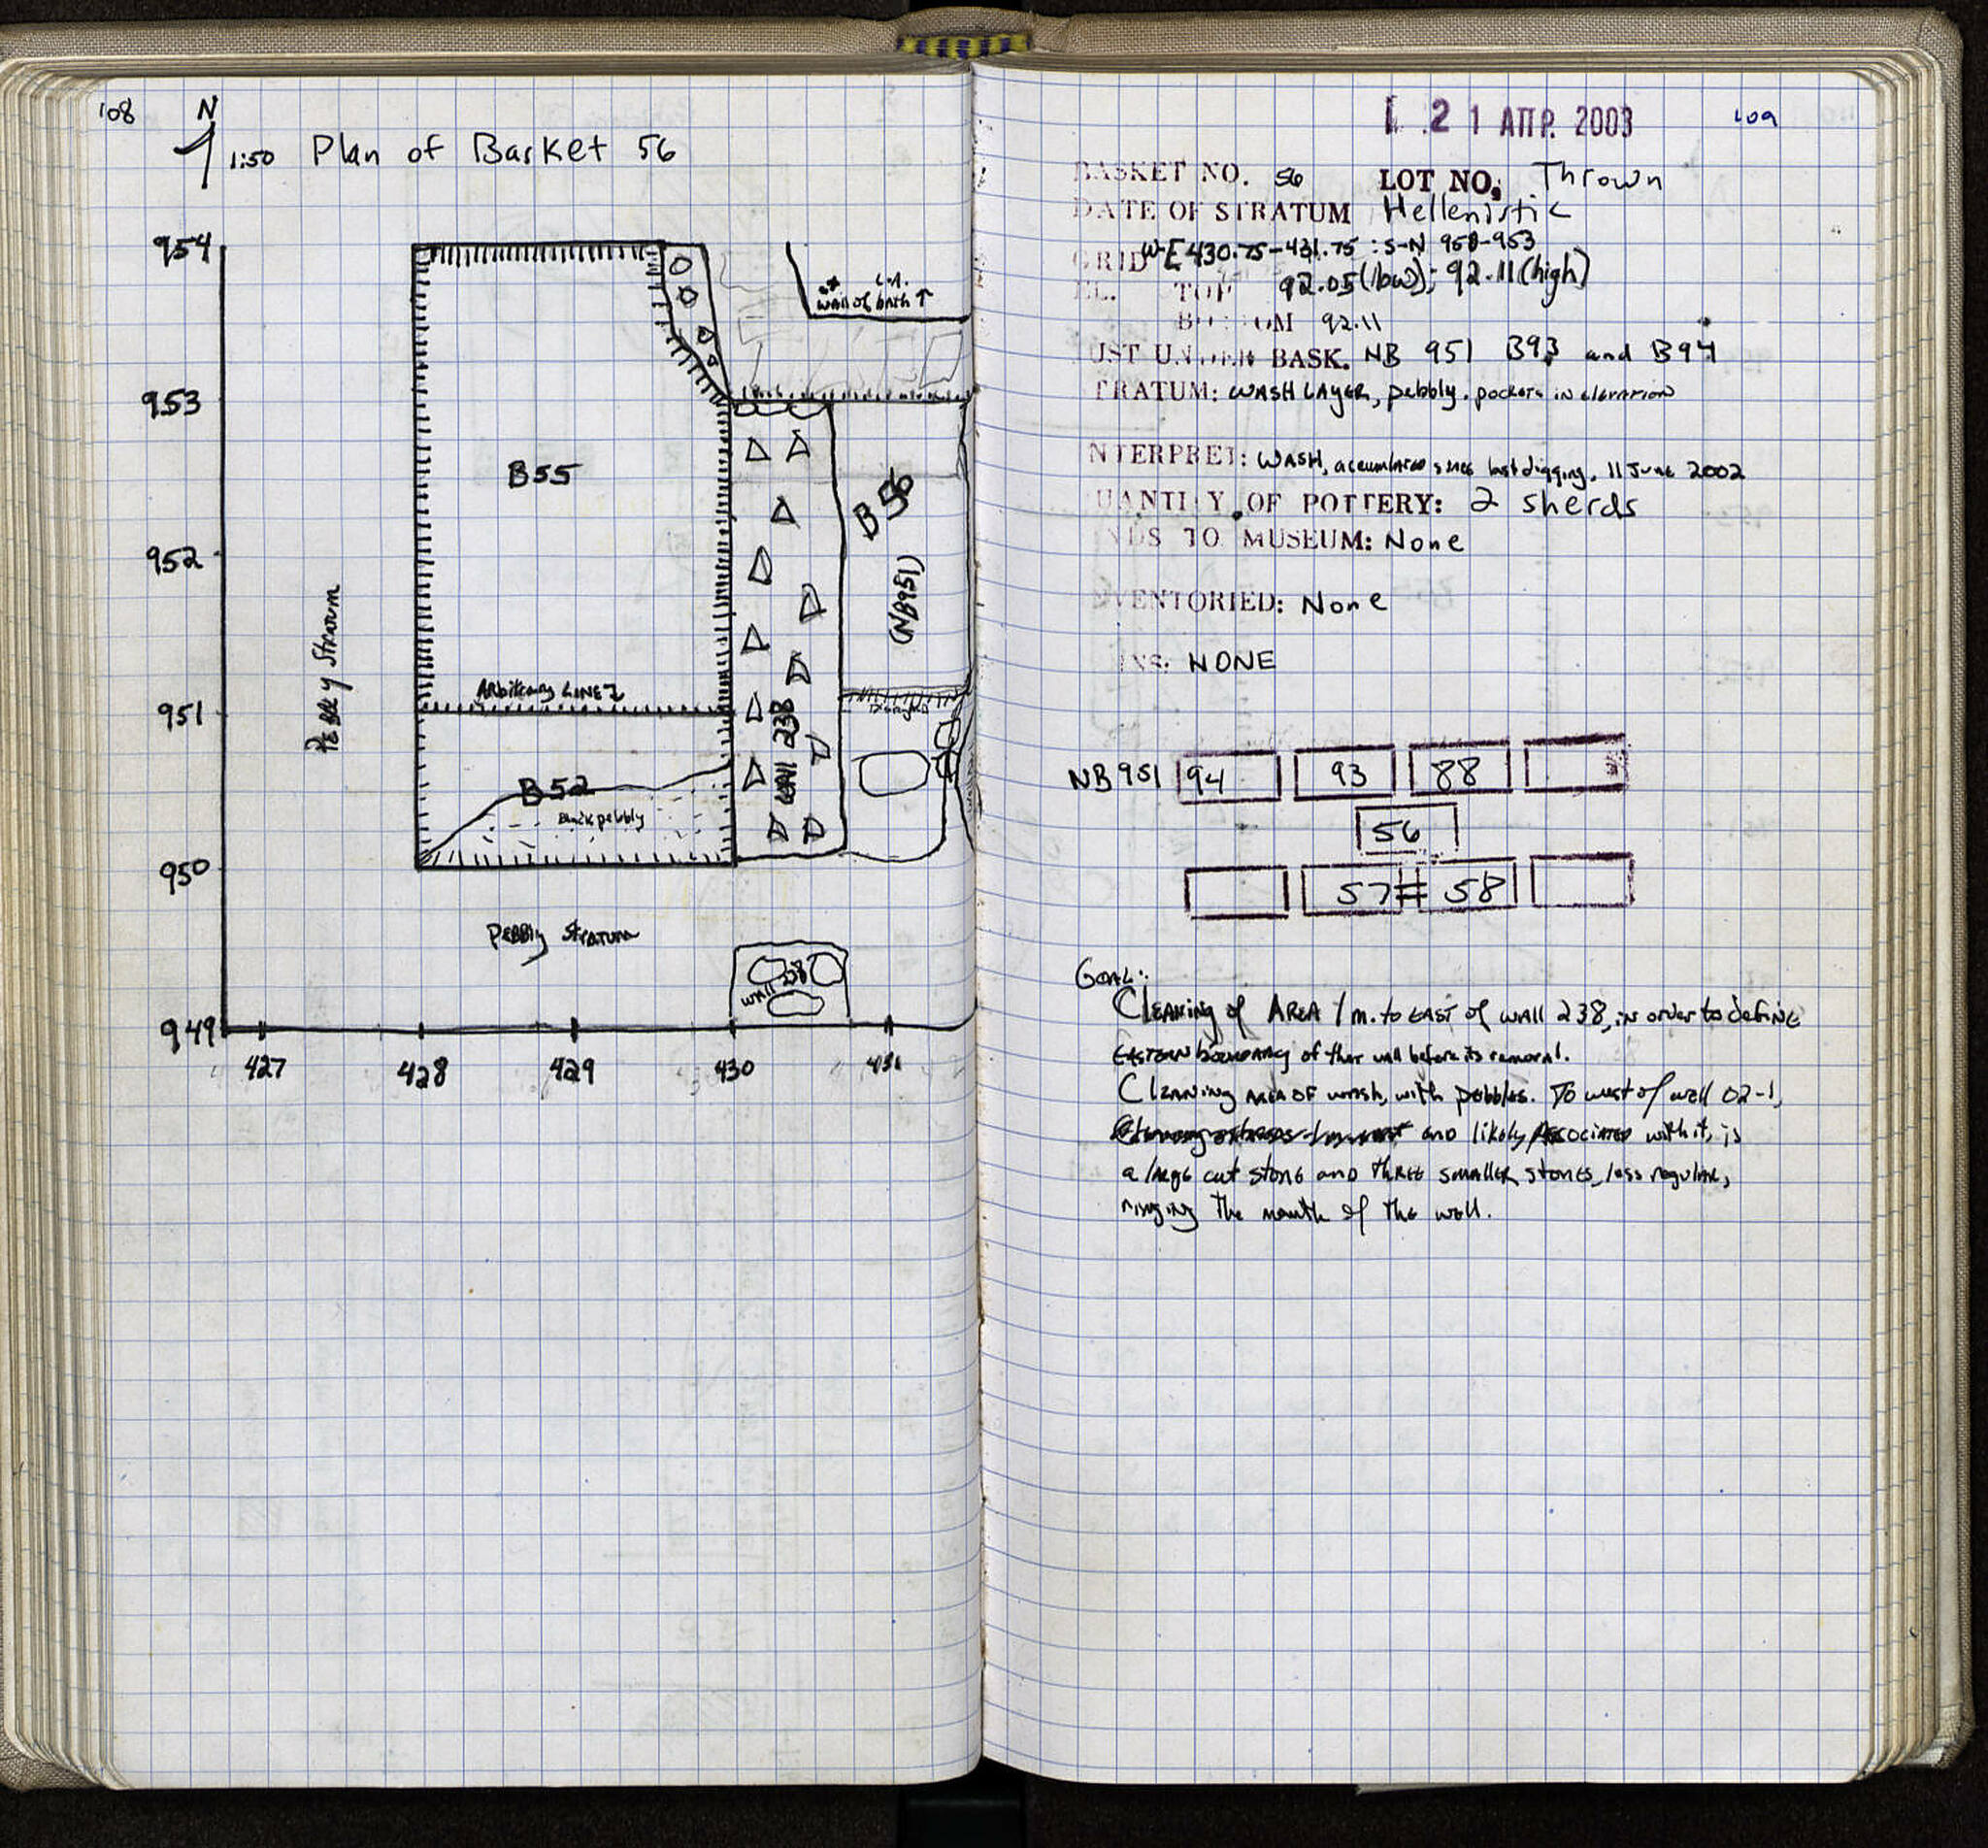 108
N
1:50 Plan of Basket 56
954
L.A.
wall of bath ↑
953
B55
B56
952
(NB951)
Pebbly Stratum
Arbitrary LINE
951
WALL 238
B52
Black pebbly
950
Pebbly Stratum
238
WALL
949
427 428 429 430 431
21 ΑΠΡ. 2003
109
BASKET NO. 56 LOT NO. Thrown
DATE OF STRATUM Hellenistic
GRID W-E 430.75-431.75 : S-N 950-953
EL. TOP 92.05 (low); 92.11 (high)
BOTTOM 92.11
UST UNDER BASK. NB 951 B93 and B94
TRATUM: WASH LAYER, pebbly. pockets in elevation
NTERPRET: WASH, accumulated since last digging, 11 June 2002
UANTITY OF POTTERY: 2 sherds
NDS TO MUSEUM: None
VENTORIED: None
INS: NONE
NB 951 94 93 88
56
57 # 58
GOAL:
Cleaning of AREA 1 m. to EAST of wall 238, in order to define
EASTERN boundary of that wall before its removal.
Cleaning AREA OF wash, with pebbles. To west of well 02-1,
and likely Associated with it, is
a large cut stone and three smaller stones, less regular,
ringing the mouth of the well.